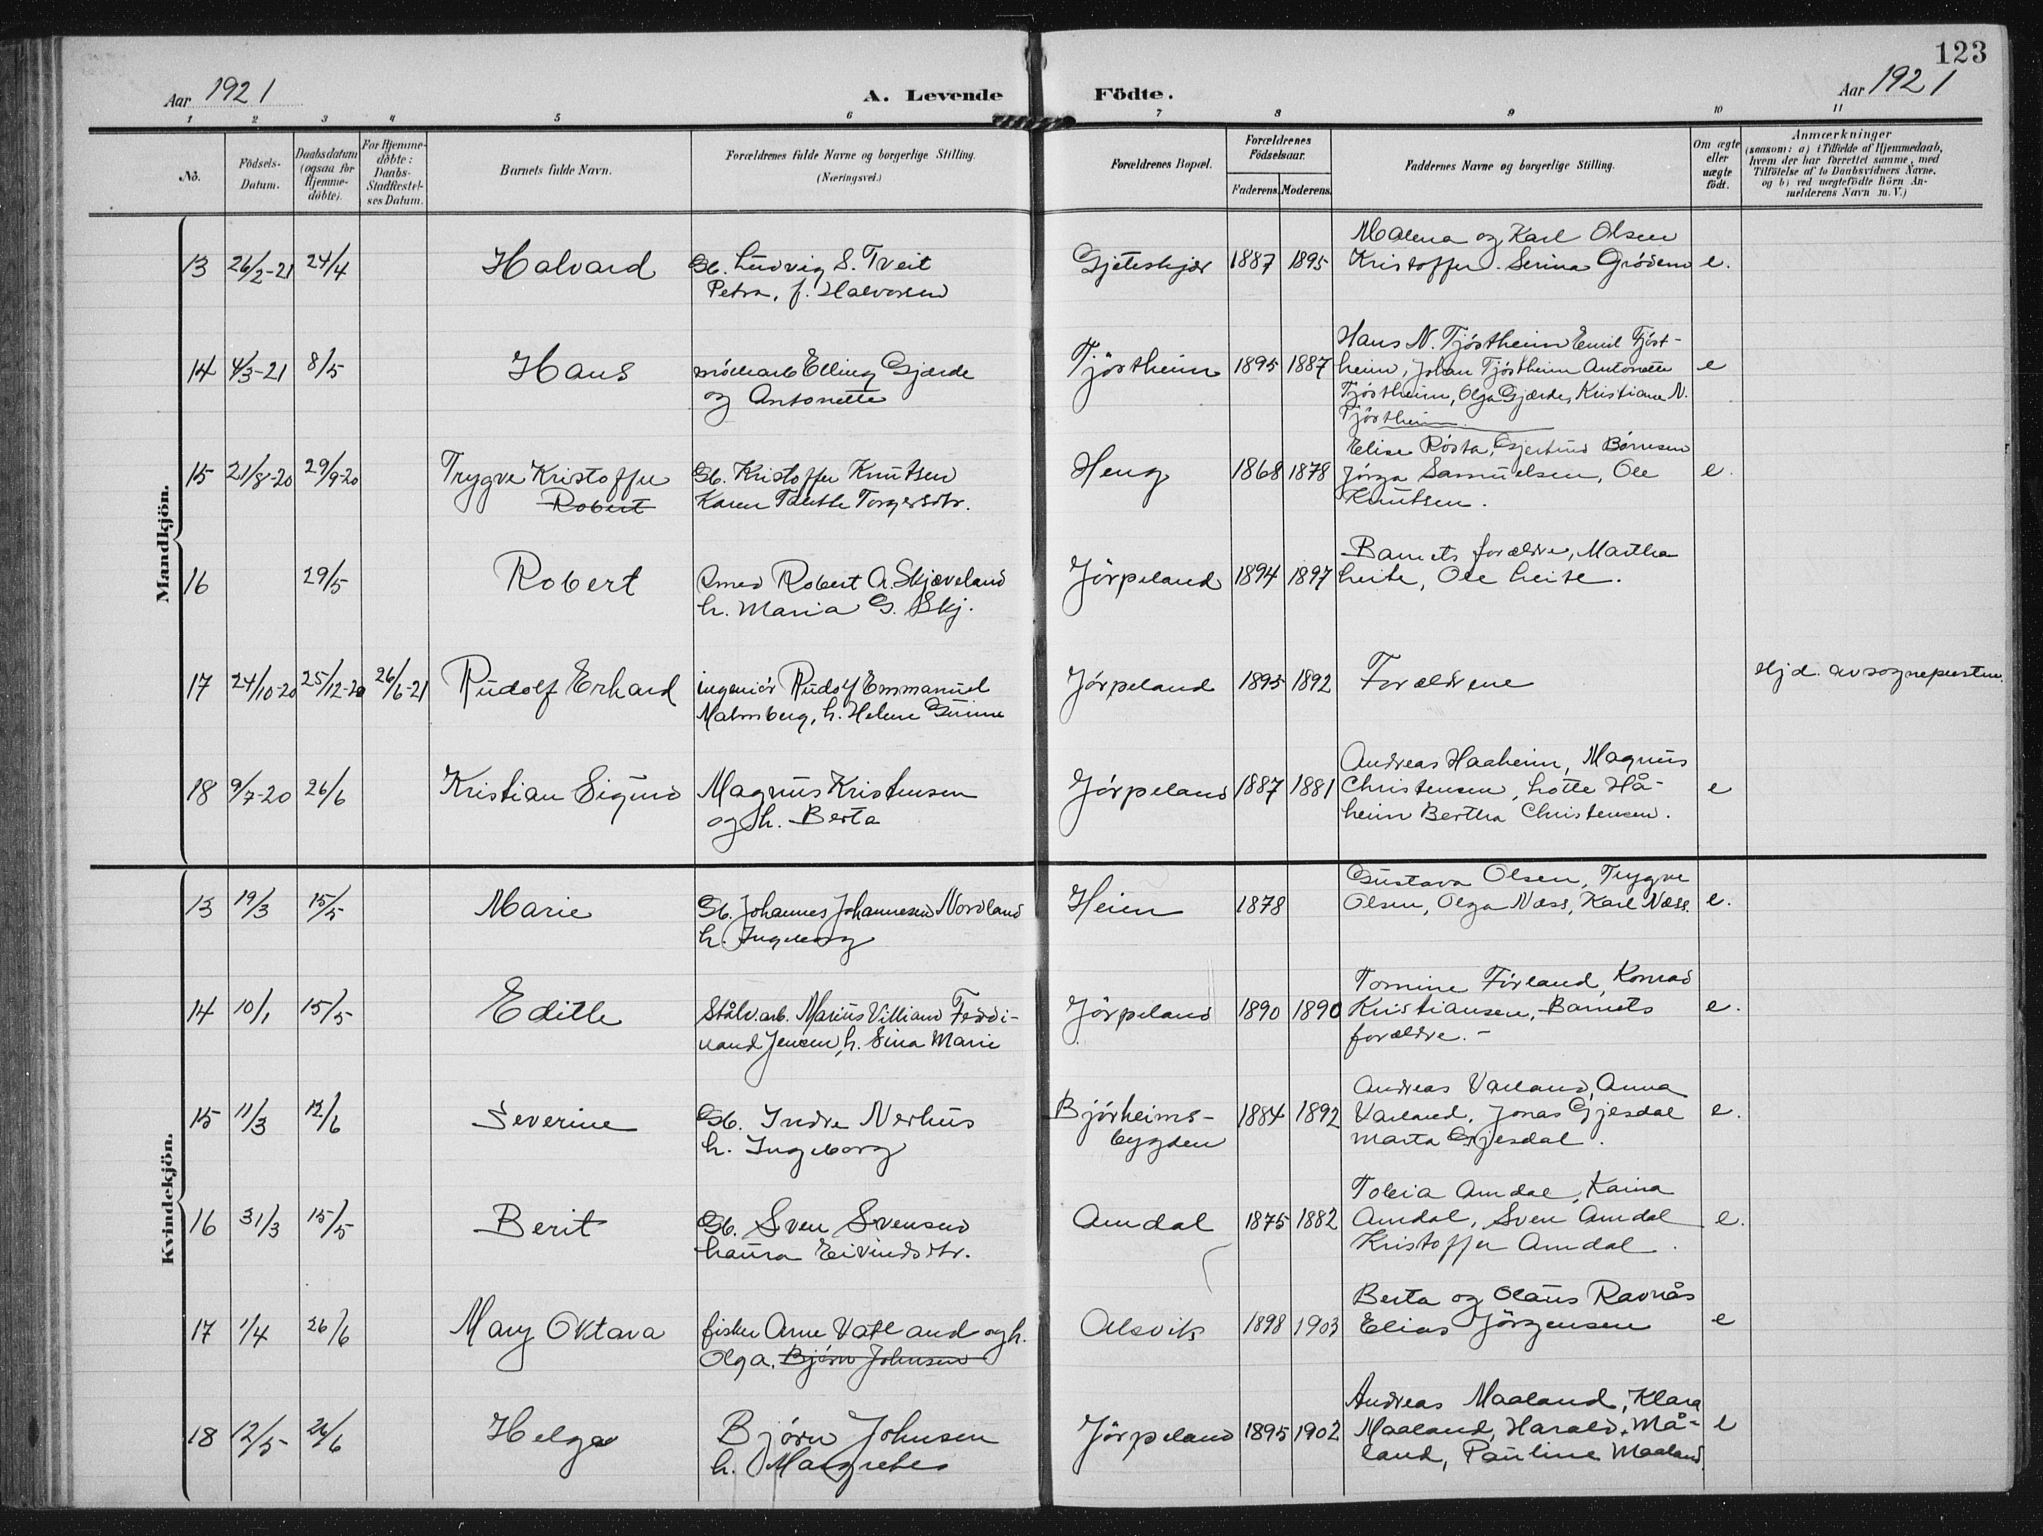 123
Aar 1921 A. Levende Födte. Aar 1921
1 2 3 4 5 6 7 8 9 10 11
No.
Födsels-
Datum.
Daabsdatum
(ogsaa for
Hjemme-
döbte).
For Hjemme-
döbte:
Daabs-
Stadfæstel-
ses Datum.
Barnets fulde Navn.
Forældrenes fulde Navne og borgerlige Stilling.
(Næringsvei.)
Forældrenes Bopæl.
Forældrenes
Födselsaar.
Faderens. Moderens.
Faddernes Navne og borgerlige Stilling.
Om ægte
eller
uægte
födt.
Anmærkninger
(saasom: a) i Tilfælde af Hjemmedaab,
hvem der har forrettet samme, med
Tilföielse af to Daabsvidners Navne.
og b) ved uægtefödte Börn An-
melderens Navn m. V.)
Mandkjön.
13 26/2-21 24/4 Halvard Gb. Ludvig S. Tveit
Petra, f. Halvorsen
1887 1895 Malena og Karl Olsen
Kristoffer. Serina Grödem e.
14 4/3-21 8/5 Hans Elling Gjerde
og Antonette
Tjöstheim 1895 1887 Hans N. Tjöstheim Emil Tjöst-
heim, Johan Tjöstheim Antonette
Tjöstheim, Olga Gjerde, Kristiane N.
Tjöstheim. e
15 21/8-20 29/9-20 Trygve Kristoffer
Robert
Gb. Kristoffer Knutsen
Karen Torgersdtr.
Heng 1868 1878 Elise Rösta, Gjertrud Börresen
Jörga Samuelsen, Ole
Knutsen. e.
16 29/5 Robert Smed Robert A. Skjæveland
h. Maria G. Skj.
Jörpeland 1894 1897 Barnets forældre, Martha
Leite, Ole Leite.
17 24/10-20 25/12-20 26/6-21 Rudolf Erhard ingeniör Rudolf Emmanuel
Malmsberg, h. Helene
Jörpeland 1895 1892 Forældrene Hjd. av sognepresten.
18 9/7-20 26/6 Kristian Sigurd Magnus Kristensen
og h. Berta
Jörpeland 1887 1881 Andreas Haaheim, Magnus
Christensen, Lotte Hå-
heim Bertha Christensen. e
Kvindekjön.
13 19/3 15/5 Marie Gb. Johannes Johannesen Nordland
h. Ingeborg
Heien 1878 Gustava Olsen, Trygve
Olsen, Olga Næss, Karl Næss. e.
14 10/1 15/5 Edith Stålv.arb. Marius Villiand Ferdi-
nand Jensen, h. Sina Marie
Jörpeland 1890 1890 Tomine Förland, Konrad
Kristiansen, - Barnets
forældre. - e.
15 11/3 12/6 Severine Gb. Indre Nerhus
h. Ingeborg
Björheims-
bygden 1884 1892 Andreas Varland, Anna
Varland, Jonas Gjesdal
Marta Gjesdal. e.
16 31/3 15/5 Berit Gb. Sven Svensen
Laura Eivindsdtr.
Amdal 1875 1882 Tobia Amdal, Kaina
Amdal, Sven Amdal
Kristoffer Amdal. e.
17 1/4 26/6 Mary Oktava fisker Arne Vatland og h.
Olga. Björn Johnsen
Alsvik 1898 1903 Berta og Olaus Ravnås
Elias Jörgensen e
18 12/5 26/6 Helga Bjørn Johnsen
h. Margrethe
Jörpeland 1895 1902 Andreas Maaland, Klara
Maaland, Harald Må-
land, Pauline Maaland. e